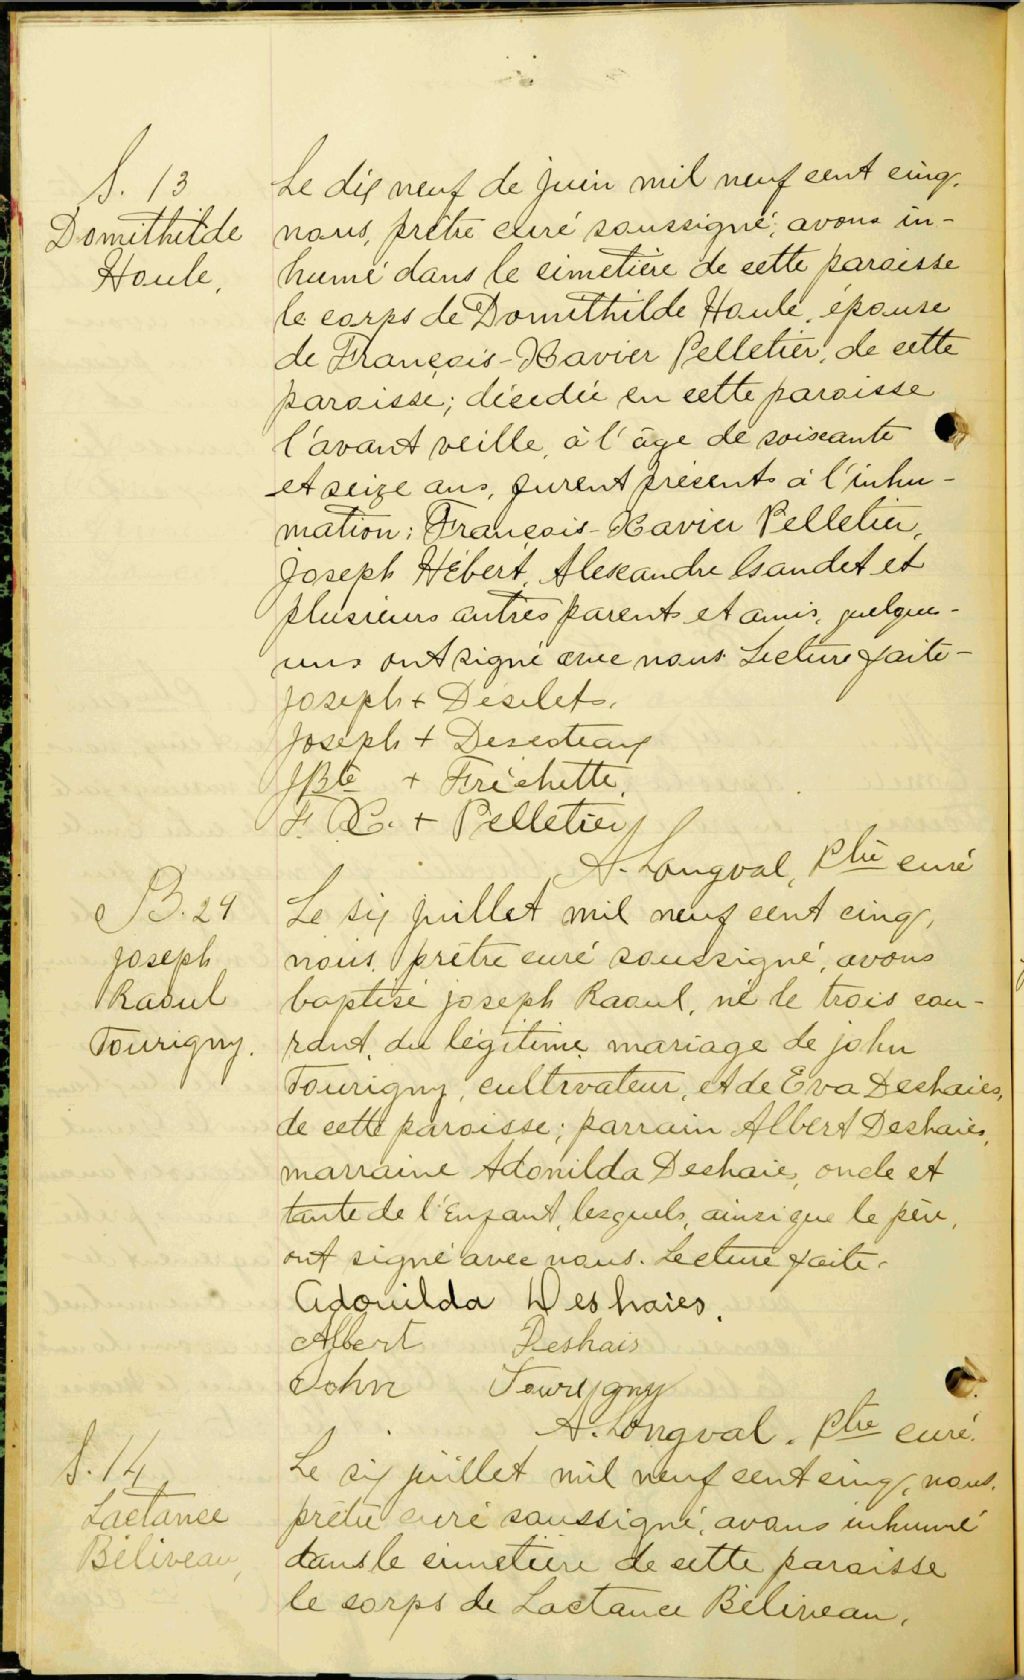 S. 13
Domithilde
Houle.
Le dix neuf de juin mil neuf cent cinq.
nous, prêtre curé soussigné, avons in-
humé dans le cimetière de cette paroisse
le corps de Domithilde Houle, épouse
de François-Xavier Pelletier, de cette
paroisse; décédée en cette paroisse
l'avant veille, à l'âge de soixante
et seize ans, furent présents à l'inhu-
mation: François-Xavier Pelletier,
Joseph Hébert, Alexandre Gaudet et
plusieurs autres parents et amis, quelques-
uns ont signé avec nous. Lecture faite-
Joseph + Désilets.
Joseph + Descoteaux
JBte + Fréchette.
F. X. + Pelletier
A. Longval, Ptre curé
B. 24
Joseph
Raoul
Tourigny.
Le six juillet mil neuf cent cinq,
nous, prêtre curé soussigné, avons
baptisé Joseph Raoul, né le trois cou-
rant, du légitime mariage de John
Tourigny, cultivateur, et de Eva Deshaies,
de cette paroisse; parrain Albert Deshaies,
marraine Adonilda Deshaie, oncle et
tante de l'Enfant, lesquels, ainsi que le père,
ont signé avec nous. Lecture faite.
Adonilda Deshaies.
Albert Deshais
John Tourygny
A. Longval. Ptre curé.
S. 14
Lactance
Béliveau,
Le six juillet mil neuf cent cinq, nous.
prêtre curé soussigné, avons inhumé
dans le cimetière de cette paroisse
le corps de Lactance Béliveau,